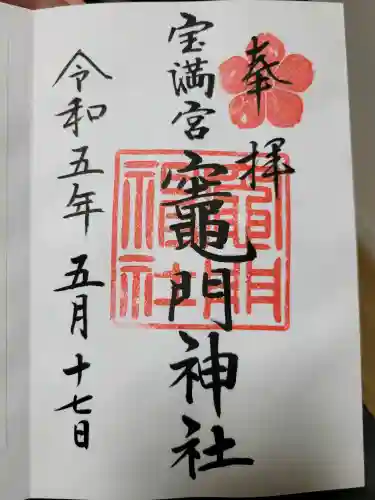 奉拝
宝満宮
竈門神社
令和五年五月十七日
竈門
神社